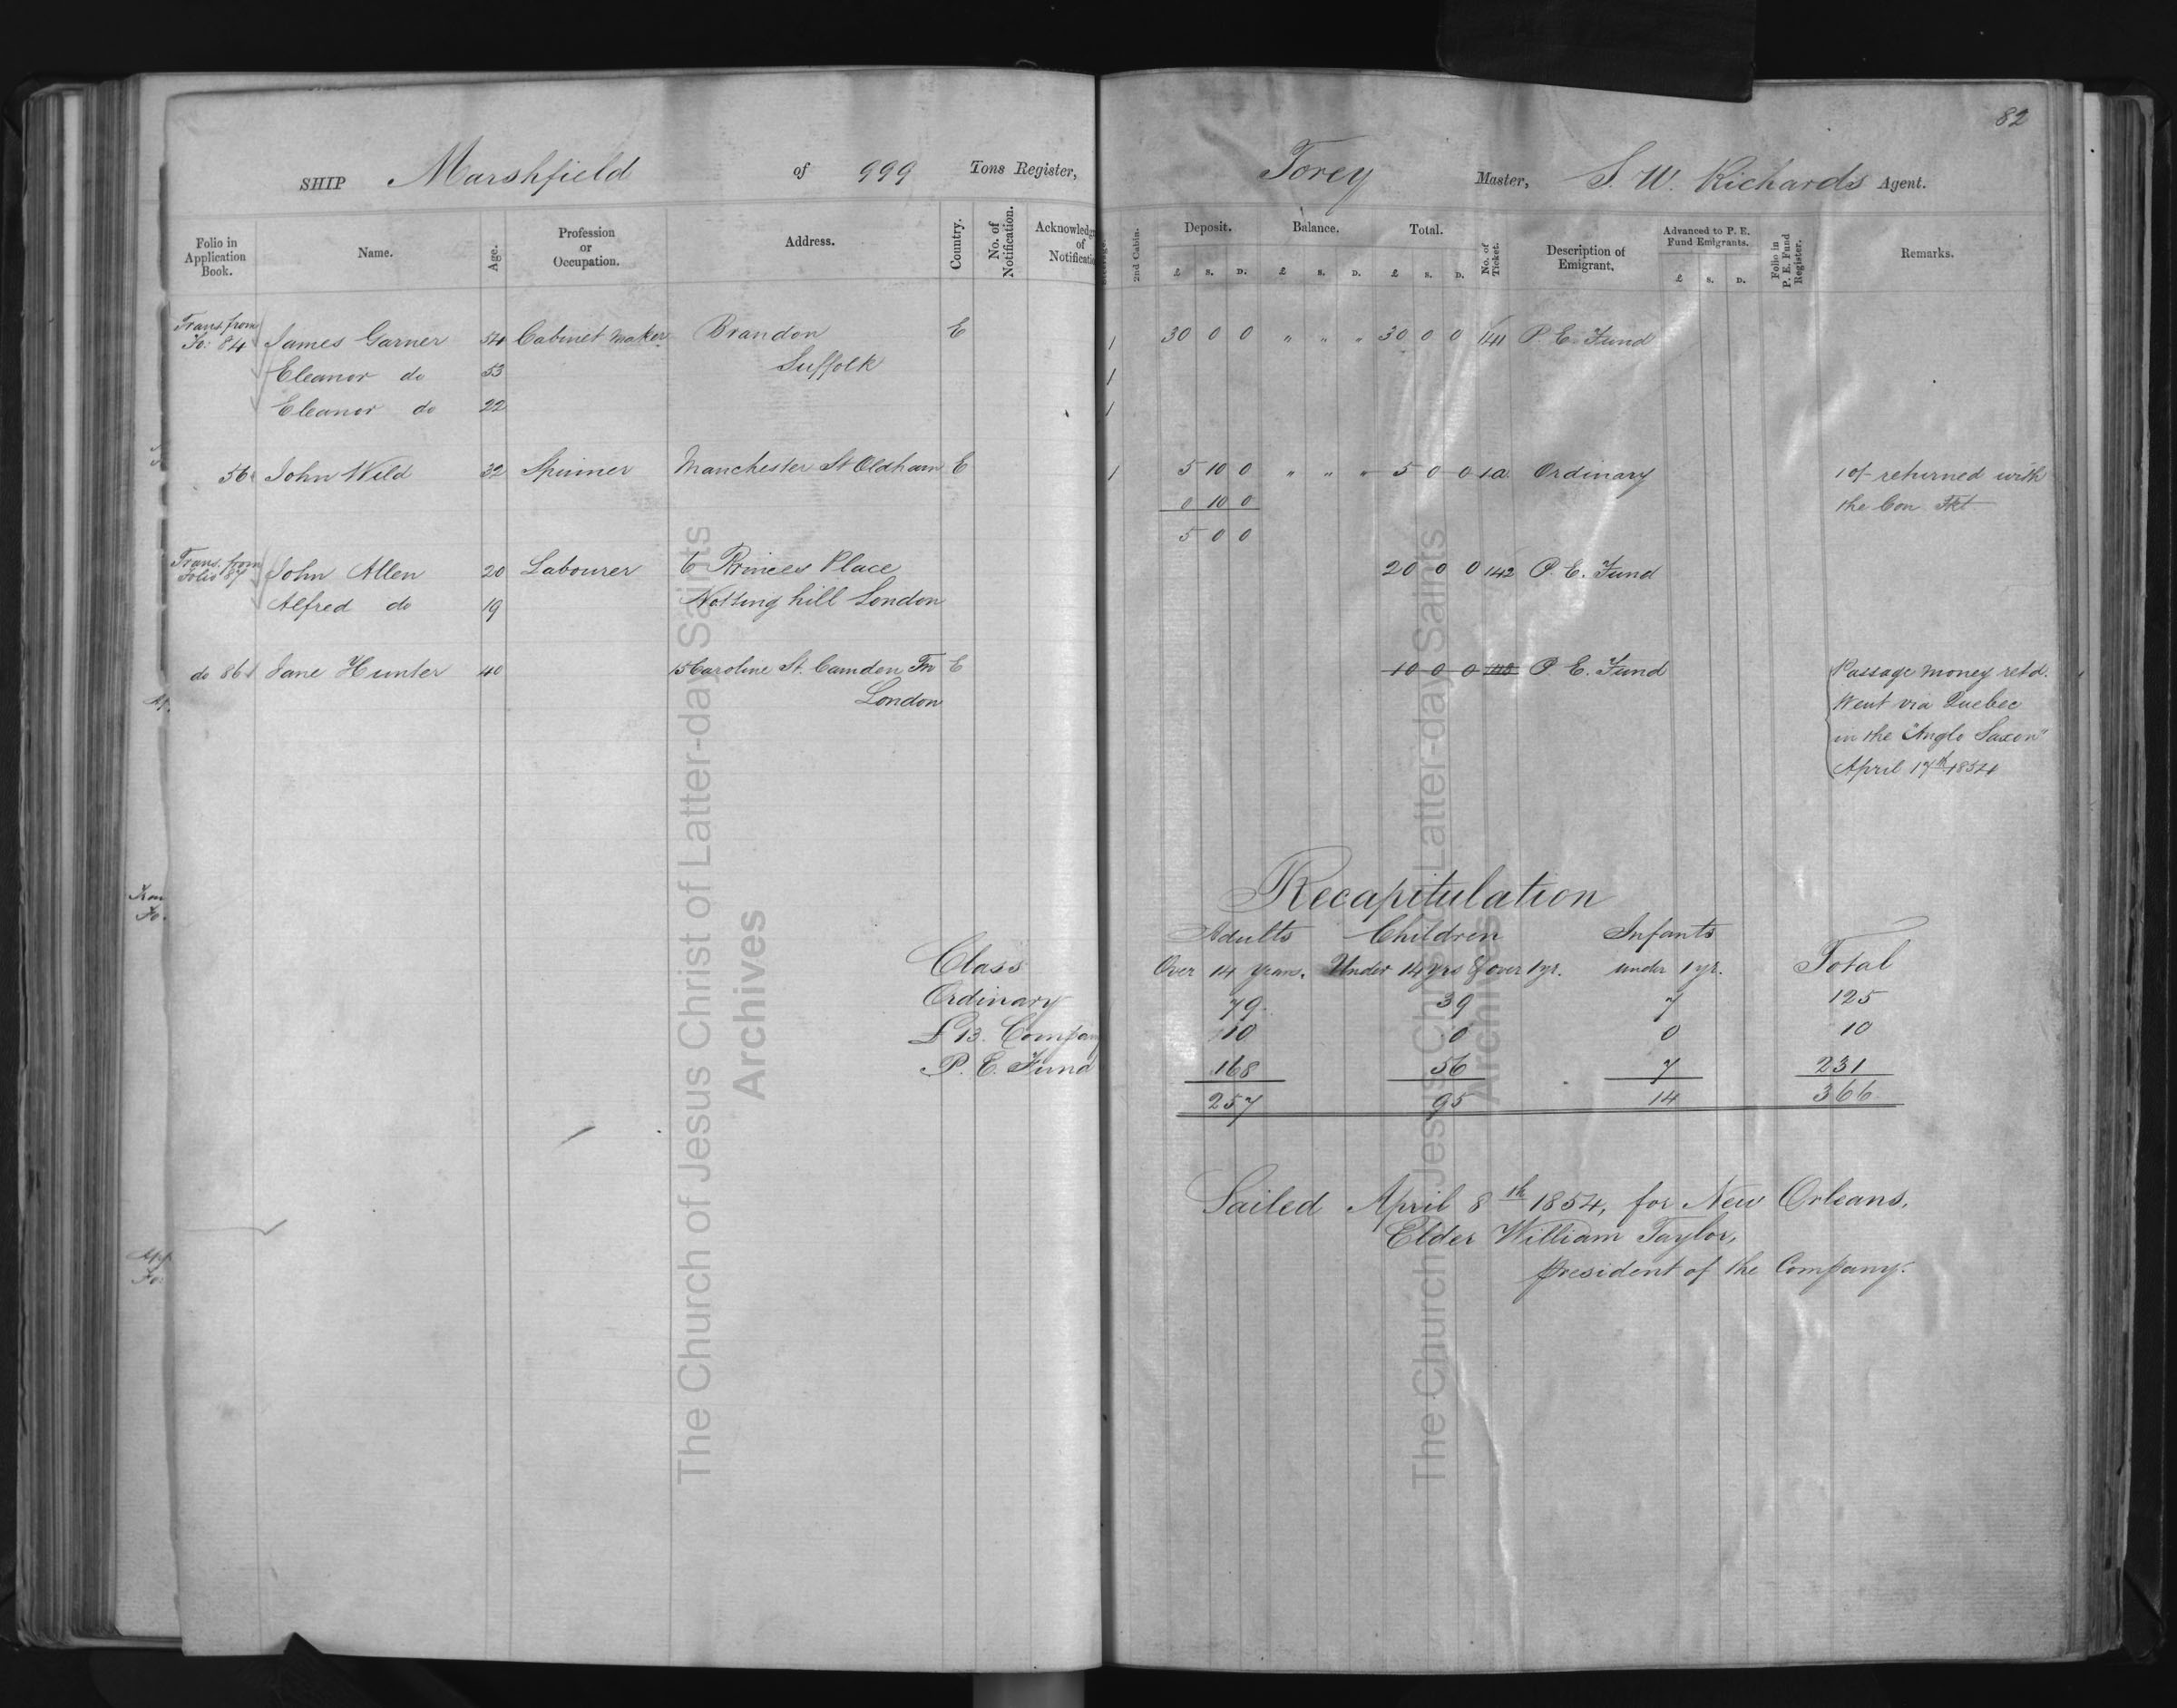 82
SHIP Marshfield of 999 Tons Register, Torey Master, S. W. Richards Agent.
Folio in Application Book. Name. Age. Profession or Occupation. Address. Country. No. of Notification. Acknowledg of Notificatio 2nd Cabin. Deposit. £ s. D. Balance. £ s. D. Total. £ s. D. No. of Ticket. Description of Emigrant. Advanced to P. E. Fund Emigrants. £ s. D. Folio in P. E. Fund Register. Remarks.
Trans. from
Fo: 84 James Garner 54 Cabinet Maker Brandon E 1 30 0 0 " " " 30 0 0 141 P. E. Fund
Eleanor do 53 Suffolk 1
Eleanor do 22 1
56 John Wild 32 Spinner Manchester St Oldham E 1 5 10 0 " " " 5 0 0 1a Ordinary 10/- returned with
0 10 0 the Con Tkt
5 0 0
Trans. from
Folio 87 John Allen 20 Labourer 6 Princes Place 20 0 0 142 P. E. Fund
Alfred do 19 Notting hill London
do 86 Jane Hunter 40 15 Caroline St. Camden Tn E 10 0 0 143 P. E. Fund Passage money retd.
London Went via Quebec
in the "Anglo Saxon"
April 17th 1854
Recapitulation
Class Adults Children Infants Total
Over 14 years. Under 14 yrs & over 1 yr. under 1 yr.
Ordinary 79 39 7 125
£13. Company 10 0 0 10
P. E. Fund 168 56 7 231
257 95 14 366
Sailed April 8th 1854, for New Orleans.
Elder William Taylor,
president of the Company.
The Church of Jesus Christ of Latter-day Saints
Archives
The Church of Jesus Christ of Latter-day Saints
Archives